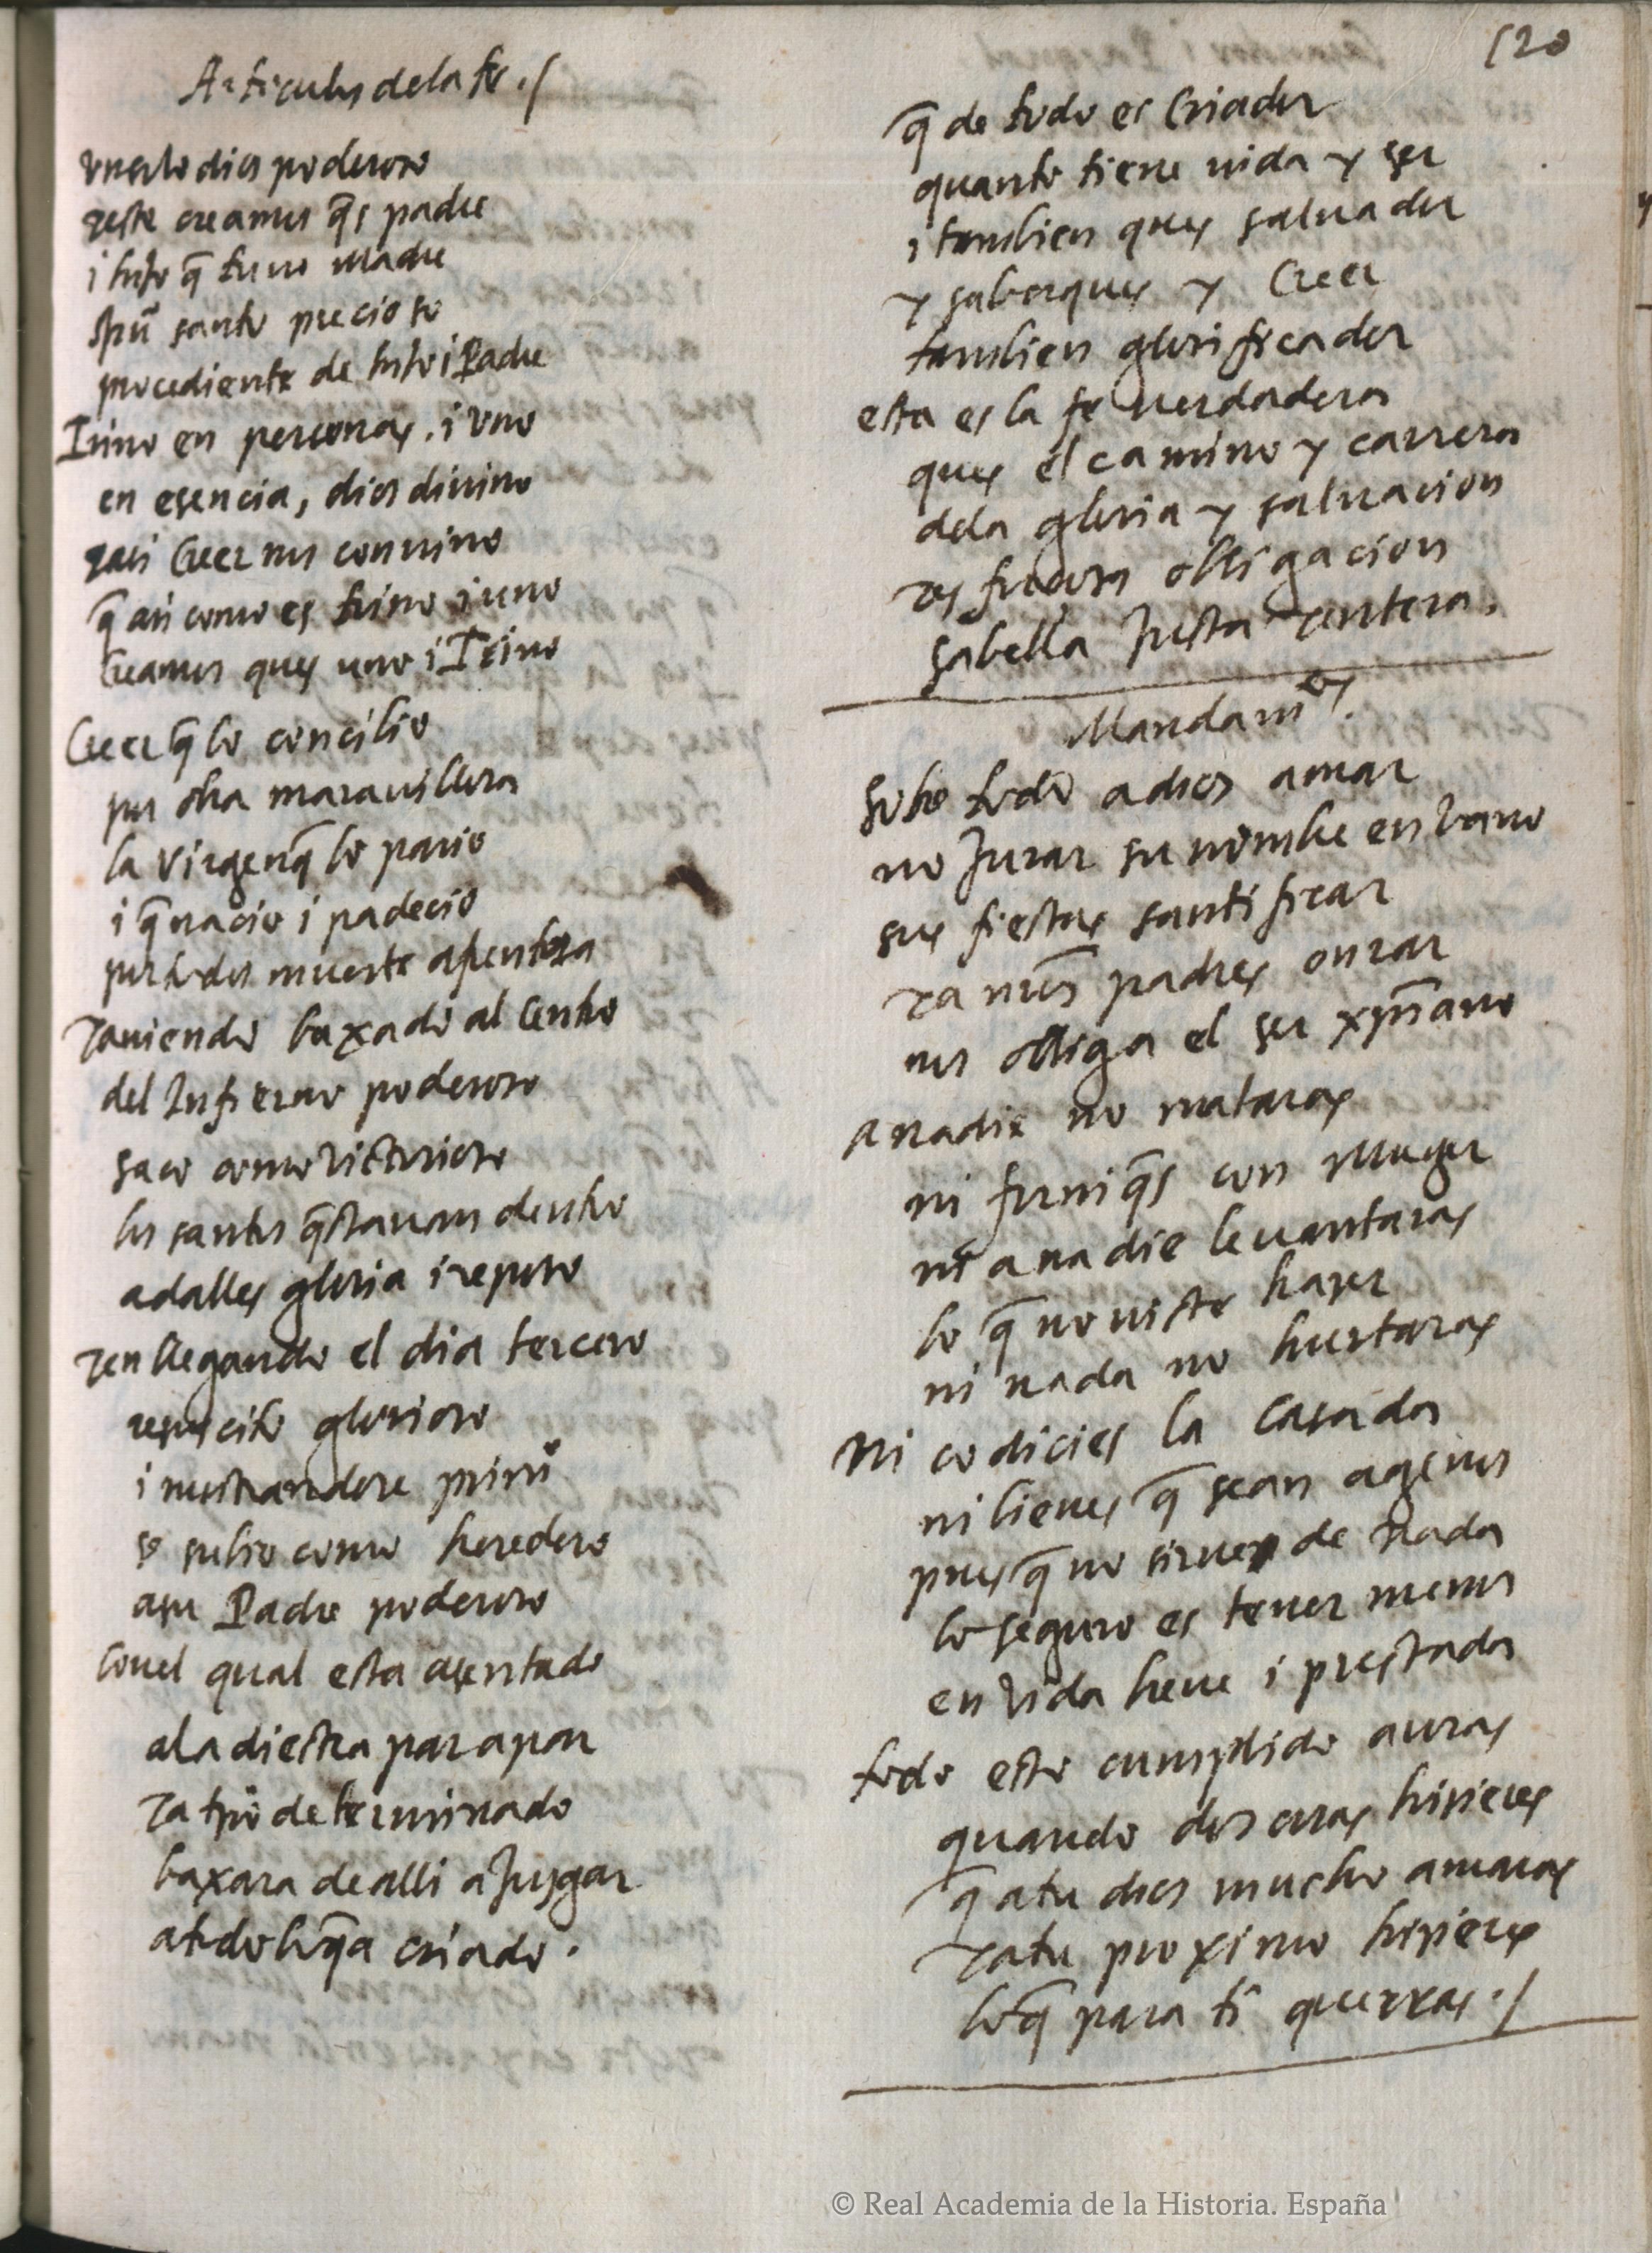 120
Articulos de la fe ./
un solo dios poderoso
y este creamos q̃s padre
i hijo q̃ tuuo madre
spũ santo precioso
procediente de hijo i Padre
Trino en personas, i uno
en esencia, dios diuino
y asi Creer nos conuino
q̃ asi como es trino i uno
Creamos ques uno i Trino
Creer q̃ lo concibio
por obra marauillosa
la virgen q̃ lo pario
i q̃ nacio i padecio
por todos muerte afrentosa
y auiendo baxado al centro
del Infierno poderoso
saco como victorioso
los santos q̃stauan dentro
a dalles gloria i reposo
y en llegando el dia tercero
resuscito glorioso
i mostrandose primº
se subio como heredero
a su Padre poderoso
con el qual esta asentado
a la diestra par a par
y a tpõ determinado
baxara de alli a Juzgar
a todo lo q̃ a criado .
q̃ de todo es Criador
quanto tiene uida y ser
i tambien ques saluador
y saber ques y Creer
tambien glorificador
esta es la fe uerdadera
ques el camino y carrera
de la gloria y saluacion
y es fuerza obligacion
sabella Justa y entera.
Mandamiºs.
sobre todo a dios amar
no Jurar su nombre en vano
sus fiestas santificar
y a nr̃os padres onrar
nos obliga el ser xp̃iano
A nadie no mataras
ni forniq̃s con muger
ni a nadie leuantaras
lo q̃ no uiste hazer
ni nada no hurtaras
Ni codicies la casada
ni bienes q̃ sean agenos
pues q̃ no siruen de nada
lo seguro es tener menos
en vida breue i prestada
todo esto cumplido auras
quando dos cosas hizieres
q̃ a tu dios mucho amaras
y a tu proximo hizieres
lo q̃ para ti querras ./
© Real Academia de la Historia. España